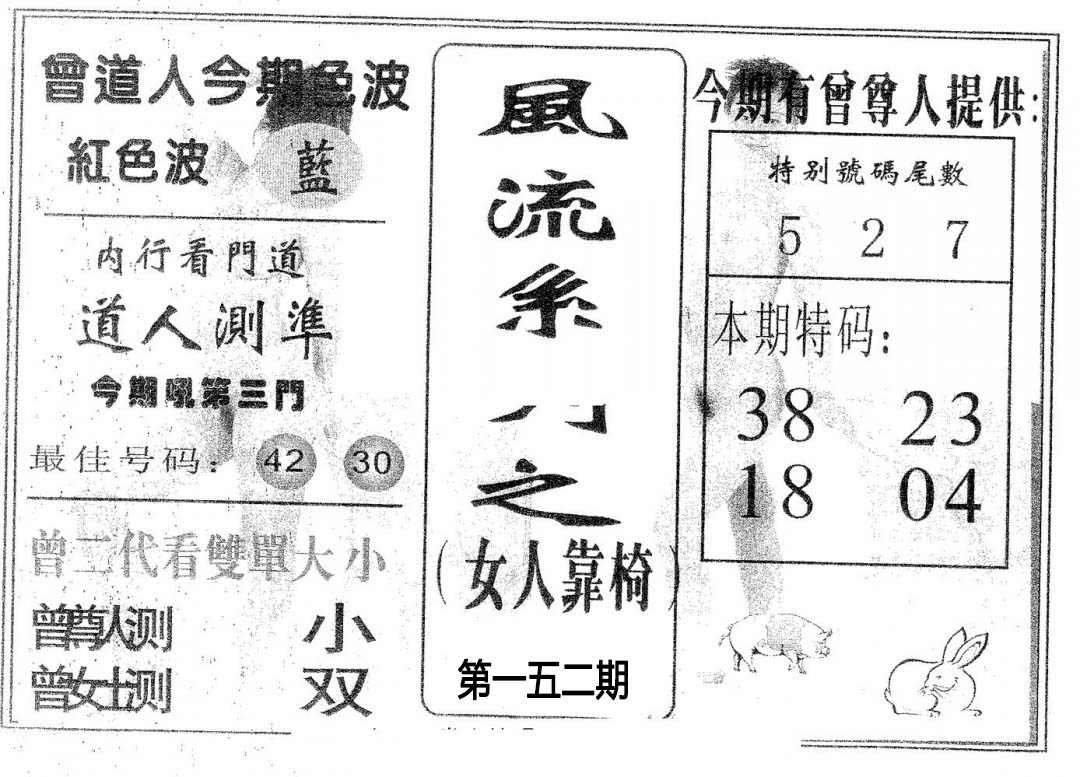 曾道人今期色波
紅色波 藍
内行看門道
道人測準
今期吼第三門
最佳号码： 42 30
曾二代看雙單大小
曾尊人测 小
曾女士测 双
風
流
系
之
（女人靠椅）
第一五二期
今期有曾尊人提供：
特别號碼尾數
5 2 7
本期特码：
38 23
18 04